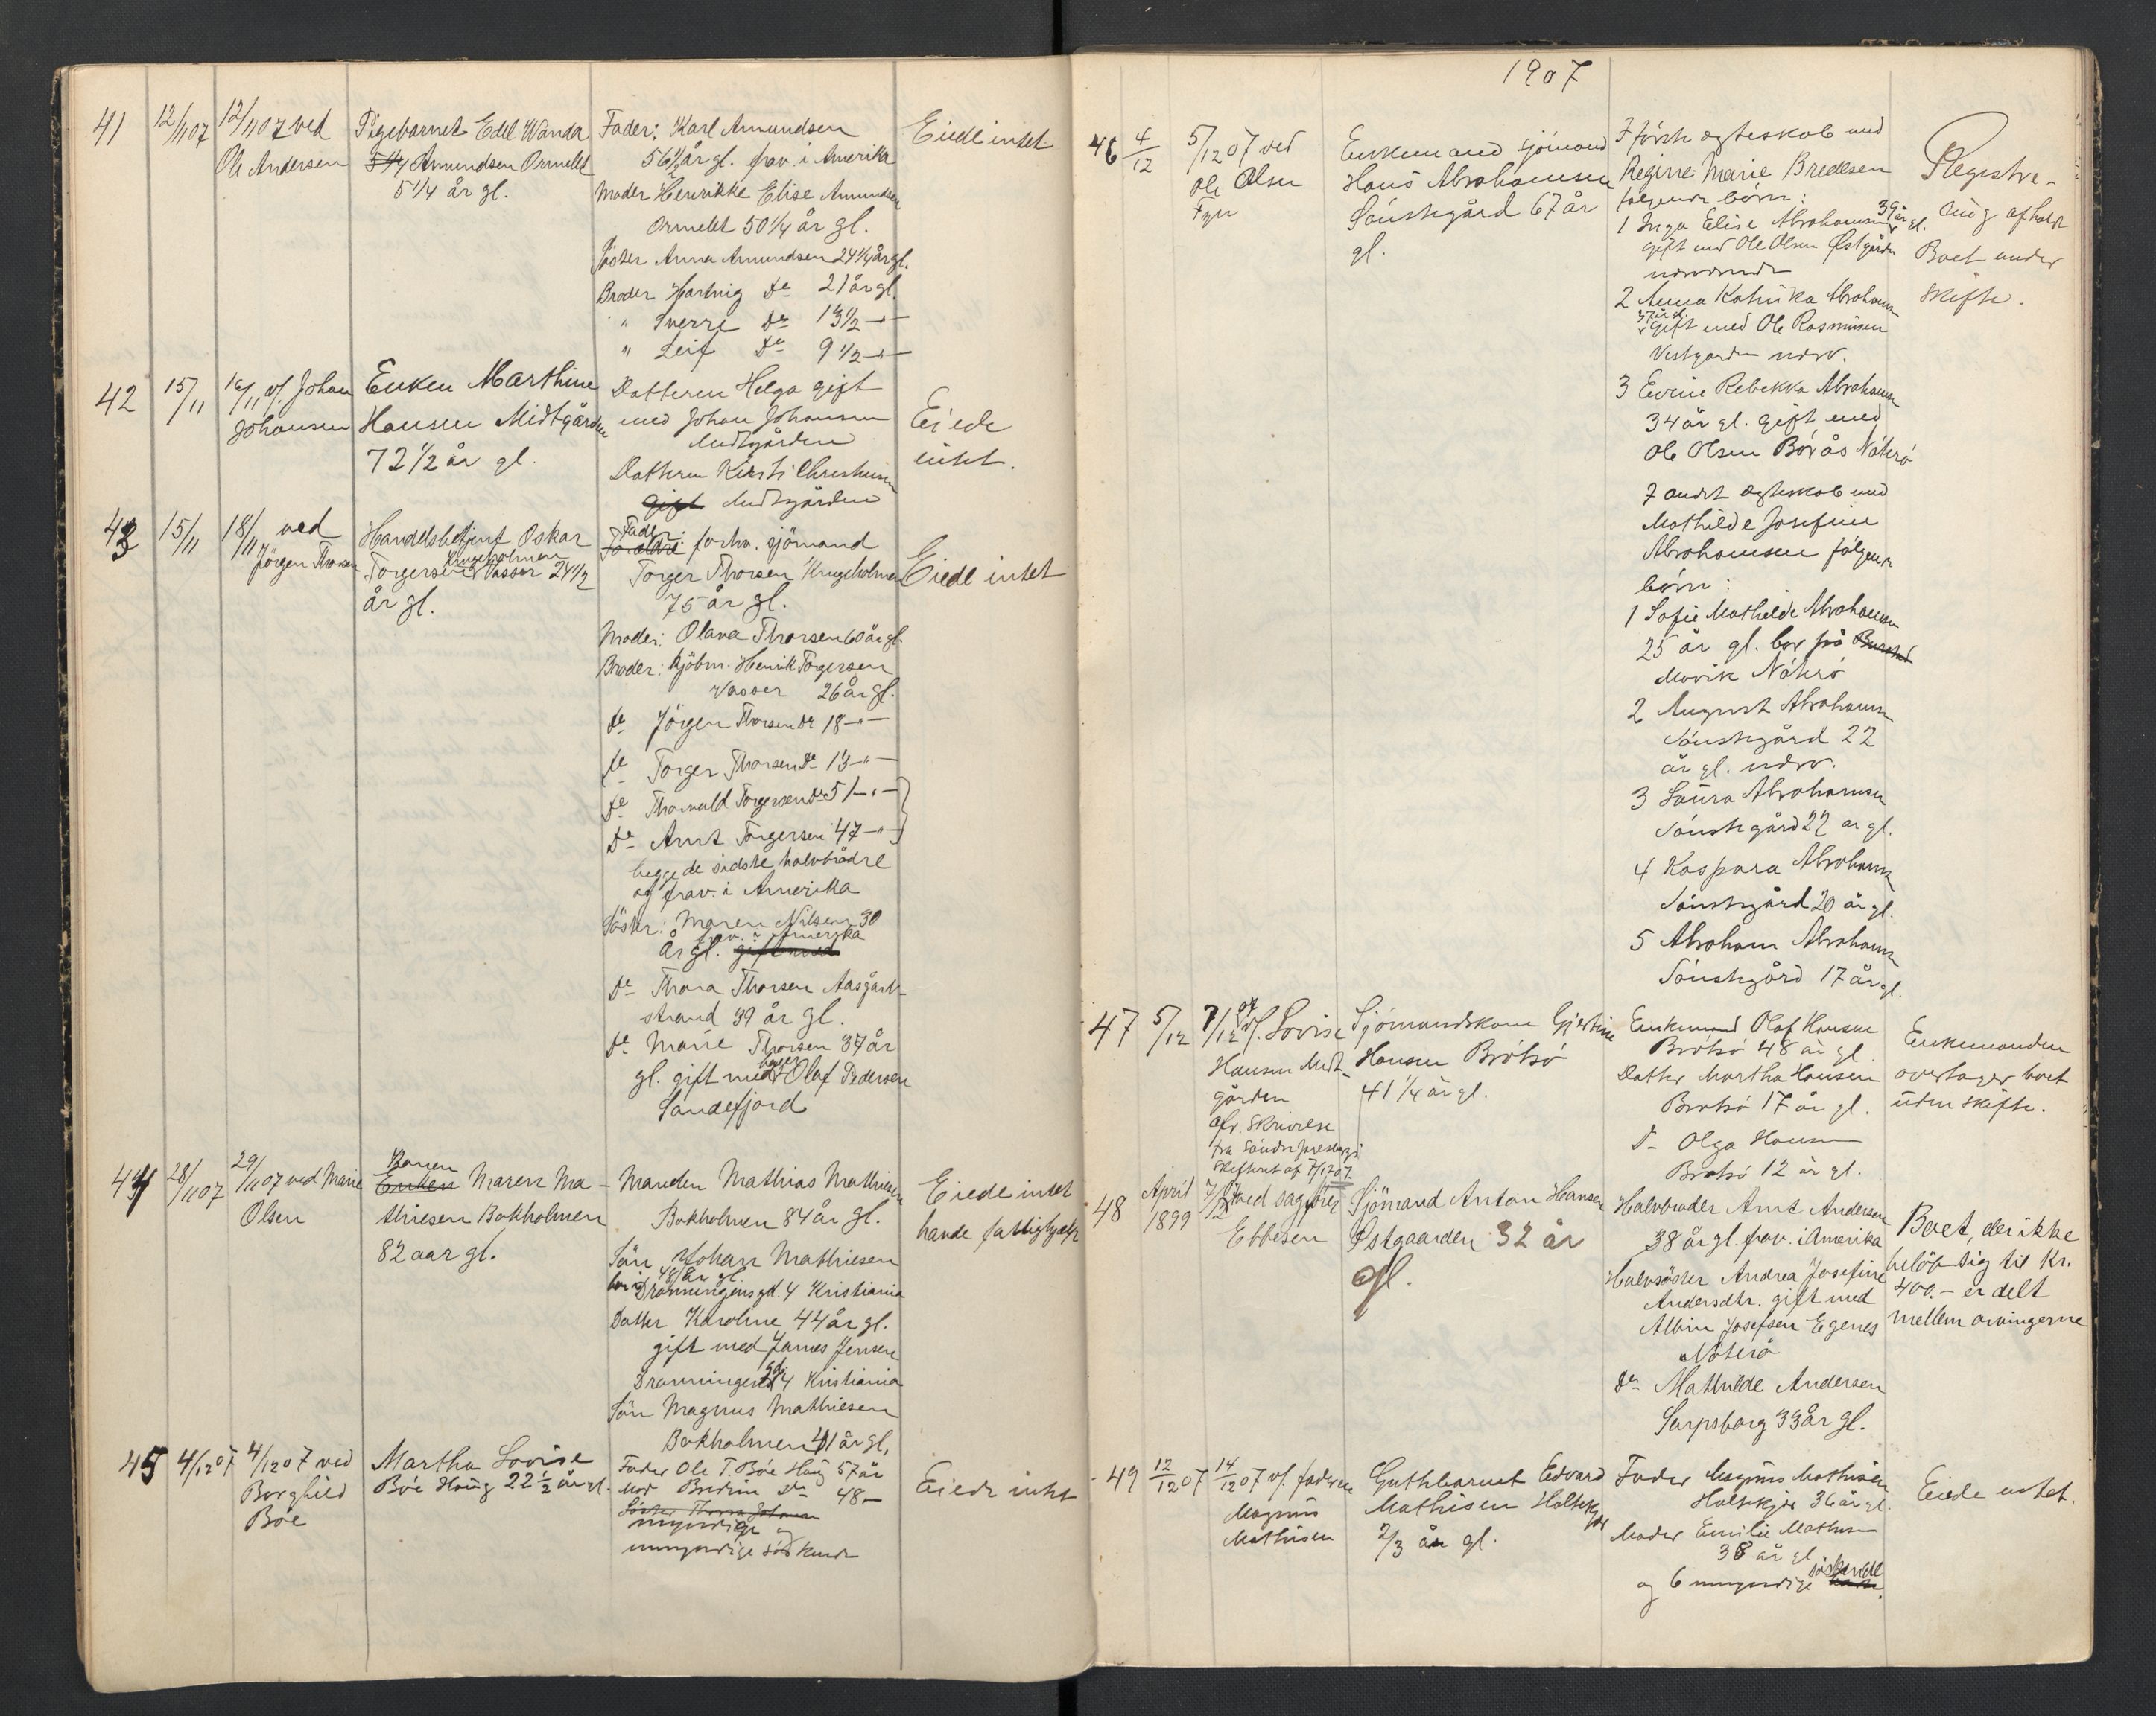 41
12/11 07
12/11 07 ved
Ole Andersen
Pigebarnet Edel Wanda
5 1/4 Amundsen Ormelet
5 1/4 år gl.
Fader: Karl Amundsen
56 1/2 år gl. frav. i Amerika
Moder Henrikke Elise Amundsen
Ormelet 50 1/4 år gl.
Söster Anna Amundsen 24 1/4 år gl.
Broder Hartvig do 21 år gl.
" Sverre do 13 1/2 -"-
" Leif do 9 1/2 -"-
Eiede intet
42
15/11
16/11 v/ Johan
Johansen
Enken Marthine
Hansen Midtgården
72 1/2 år gl.
Datteren Helga gift
med Johan Johansen
Midtgården
Datteren Kirsti Christensen
gift Midtgården
Eiede
intet.
43
15/11
18/11 ved
Jörgen Thorsen
Handelsbetjent Oskar
Krugeholmen
Torgersen Vasser 24 1/2
år gl.
Fader:
Forældre forhv. sjömand
Torger Thorsen Krugeholmen
75 år gl.
Moder: Olava Thorsen 60 år gl.
Broder: kjöbm. Henrik Torgersen
Vasser 26 år gl.
do Jörgen Thorsen do 18 -"-
do Torger Thorsen do 13 -"-
do Thorvald Torgersen do 51 -"-
do Arnt Torgersen 47 -"-
begge de sidste halvbrödre
og frav. i Amerika
Söster: Maren Nilsen 30
frav. i Amerika
år gl. gift med
do Thora Thorsen Aasgård-
strand 39 år gl.
do Marie Thorsen 37 år
bager
gl. gift med Olaf Pedersen
Sandefjord
Eiede intet
44
28/11 07
29/11 07 ved Marie
Olsen
Konen
Enken Maren Ma-
thiesen Bakholmen
82 aar gl.
Manden Mathias Mathiesen
Bakholmen 84 år gl.
Sön Johan Mathiesen
48 år gl.
bor i Dronningensgd. 4 Kristiania
Datter Karoline 44 år gl.
gift med James Jensen
Dronningensgd. 4 Kristiania
Sön Magnus Mathiesen
Bakholmen 41 år gl.
Eiede intet
havde fattighjælp
45
4/12 07
4/12 07 ved
Borghild
Böe
Martha Lovise
Böe Haug 22 1/2 år gl.
Fader Ole T. Böe Haug 57 år
Mor Bredine do 48 -
Söster Thora Johanne
myndige og
umyndige söskende
Eiede intet
1907
46
4/12
5/12 07 ved
Ole Olsen
Enkemand sjömand
Hans Abrahamsen
Sönstegård 67 år
gl.
I förste ægteskab med
Regine Marie Bredesen
fölgende börn:
1 Inga Elise Abrahamsen 39 år gl.
gift med Ole Olsen Østgården
nærværende
2 Anna Katrika Abrahamsen
37 år gl.
gift med Ole Rasmusen
Vestgården nærv.
3 Evine Rebekka Abrahamsen
34 år gl. gift med
Ole Olsen Borås Nöterö
I andet ægteskab med
Mathilde Josefine
Abrahamsen fölgende
börn:
1 Sofie Mathilde Abrahamsen
25 år gl. bor på
Movik Nöterö
2 August Abrahamsen
Sönstegård 22
år gl. nærv.
3 Laura Abrahamsen
Sönstegård 22 år gl.
4 Kaspara Abrahamsen
Sönstegård 20 år gl.
5 Abraham Abrahamsen
Sönstegård 17 år gl.
Registre-
ring afholdt
Boet under
skifte.
47
5/12
7/12 07 v/ Lovise
Hansen Midt-
gården
cfr. Skrivelse
fra Söndre Jarlsbergs
Skifteret af 7/12 07.
Sjömandskone Gjertine
Hansen Brötsö
41 1/4 år gl.
Enkemand Olaf Hansen
Brötsö 48 år gl
Datter Martha Hansen
Brötsö 17 år gl.
do Olga Hansen
Brötsö 12 år gl.
Enkemanden
overtager boet
uden skifte.
48
April
1899
7/12 07 ved sagförer
Ebbesen
Sjömand Anton Hansen
Østgaarden 32 år
gl.
Halvbroder Arnt Andersen
38 år gl. frav. i Amerika
Halvsöster Andrea Josefine
Andersdtr. gift med
Albin Josefsen Egenes
Nöterö
do Mathilde Andersen
Sarpsborg 33 år gl.
Boet, der ikke
belöp sig til Kr.
400.- er delt
mellem arvingerne
49
12/12 07
14/12 07 v/ faderen
Magnus
Mathisen
Gutebarnet Edvard
Mathisen Holtekjær
2/3 år gl.
Fader Magnus Mathisen
Holtekjær 36 år gl.
Moder Emilie Mathisen
38 år gl
söskende
og 6 umyndige
Eiede intet.